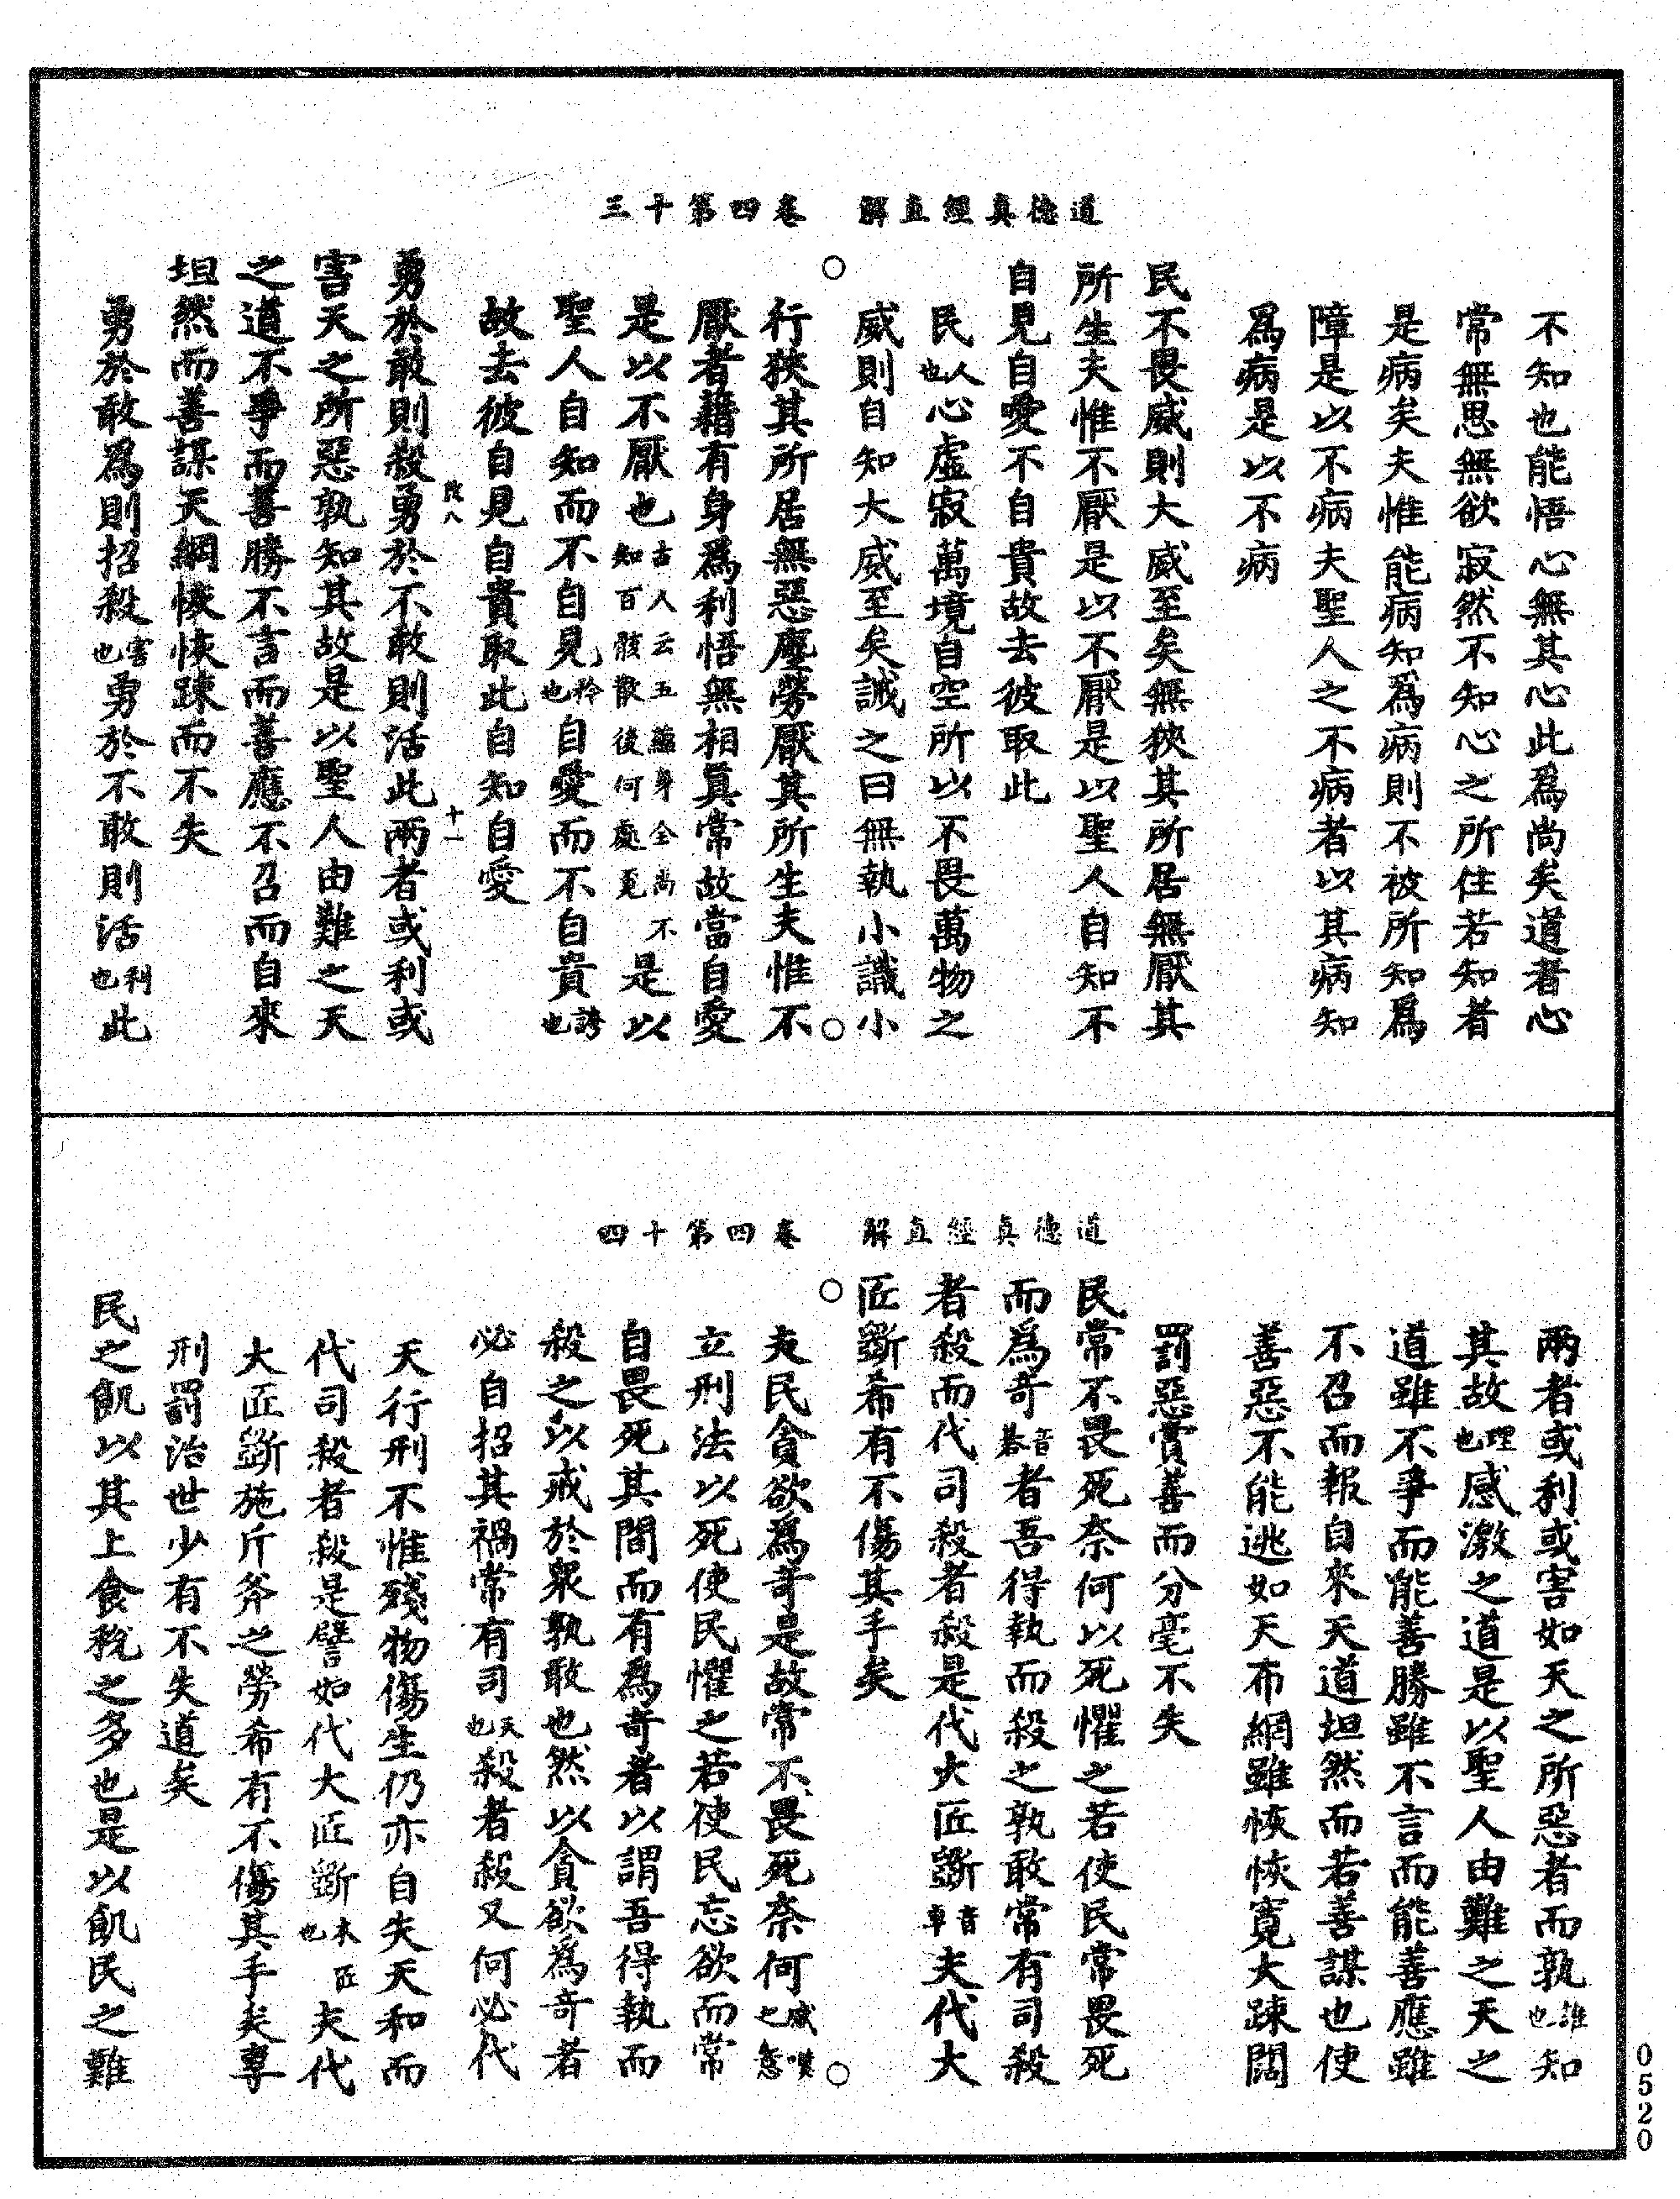 道德真經直解　卷四第十三
不知也能悟心無其心此爲尚矣道者心
常無思無欲寂然不知心之所住若知者
是病矣夫惟能病知爲病則不被所知爲
障是以不病夫聖人之不病者以其病知
爲病是以不病
民不畏威則大威至矣無狹其所居無厭其
所生夫惟不厭是以不厭是以聖人自知不
自見自愛不自貴故去彼取此
民人也心虛寂萬境自空所以不畏萬物之
威則自知大威至矣誠之曰無執小識小
行狹其所居無惡塵勞厭其所生夫惟不
厭者藉有身爲利悟無相眞常故當自愛
是以不厭也古人云五蘊身全尚不知百骸散後何處覓是以
聖人自知而不自見矜也自愛而不自貴誇也
故去彼自見自貴取此自知自愛
八　十一
勇於敢則殺勇於不敢則活此兩者或利或
害天之所惡孰知其故是以聖人由難之天
之道不爭而善勝不言而善應不召而自來
坦然而善謀天網恢恢踈而不失
勇於敢爲則招殺害也勇於不敢則活利也此
道德真經直解　卷四第十四
兩者或利或害如天之所惡者而孰誰也知
其故理也感激之道是以聖人由難之天之
道雖不爭而能善勝雖不言而能善應雖
不召而報自來天道坦然而若善謀也使
善惡不能逃如天布網雖恢恢寬大踈闊
罰惡賞善而分毫不失
民常不畏死奈何以死懼之若使民常畏死
而爲奇音碁者吾得執而殺之孰敢常有司殺
者殺而代司殺者殺是代大匠斲音卓夫代大
匠斲希有不傷其手矣
夫民貪欲爲奇是故常不畏死奈何感嘆之怠
立刑法以死使民懼之若使民忘欲而常
自畏死其間而有爲奇者以謂吾得執而
殺之以戒於眾孰敢也然以貪欲爲奇者
必自招其禍常有司天也殺者殺又何必代
天行刑不惟殘物傷生仍亦自失天和而
代司殺者殺是譬如代大匠斲木匠也夫代
大匠斲施斤斧之勞希有不傷其手矣專
刑罰治世少有不失道矣
民之飢以其上食稅之多也是以飢民之難
0520